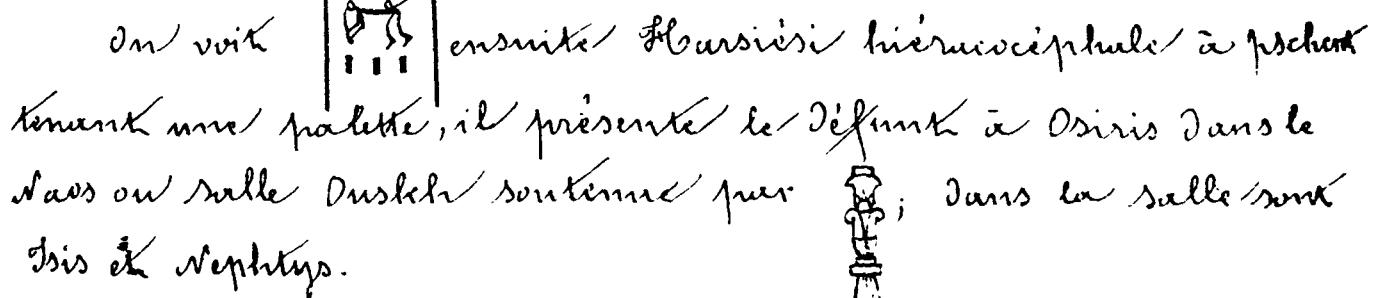 On voit ensuite Harsiési hiéracocéphale à pschent
tenant une palette, il présente le défunt à Osiris dans le
Naos ou salle Ouskh soutenue par ; dans la salle sont
Isis et Nephtys.